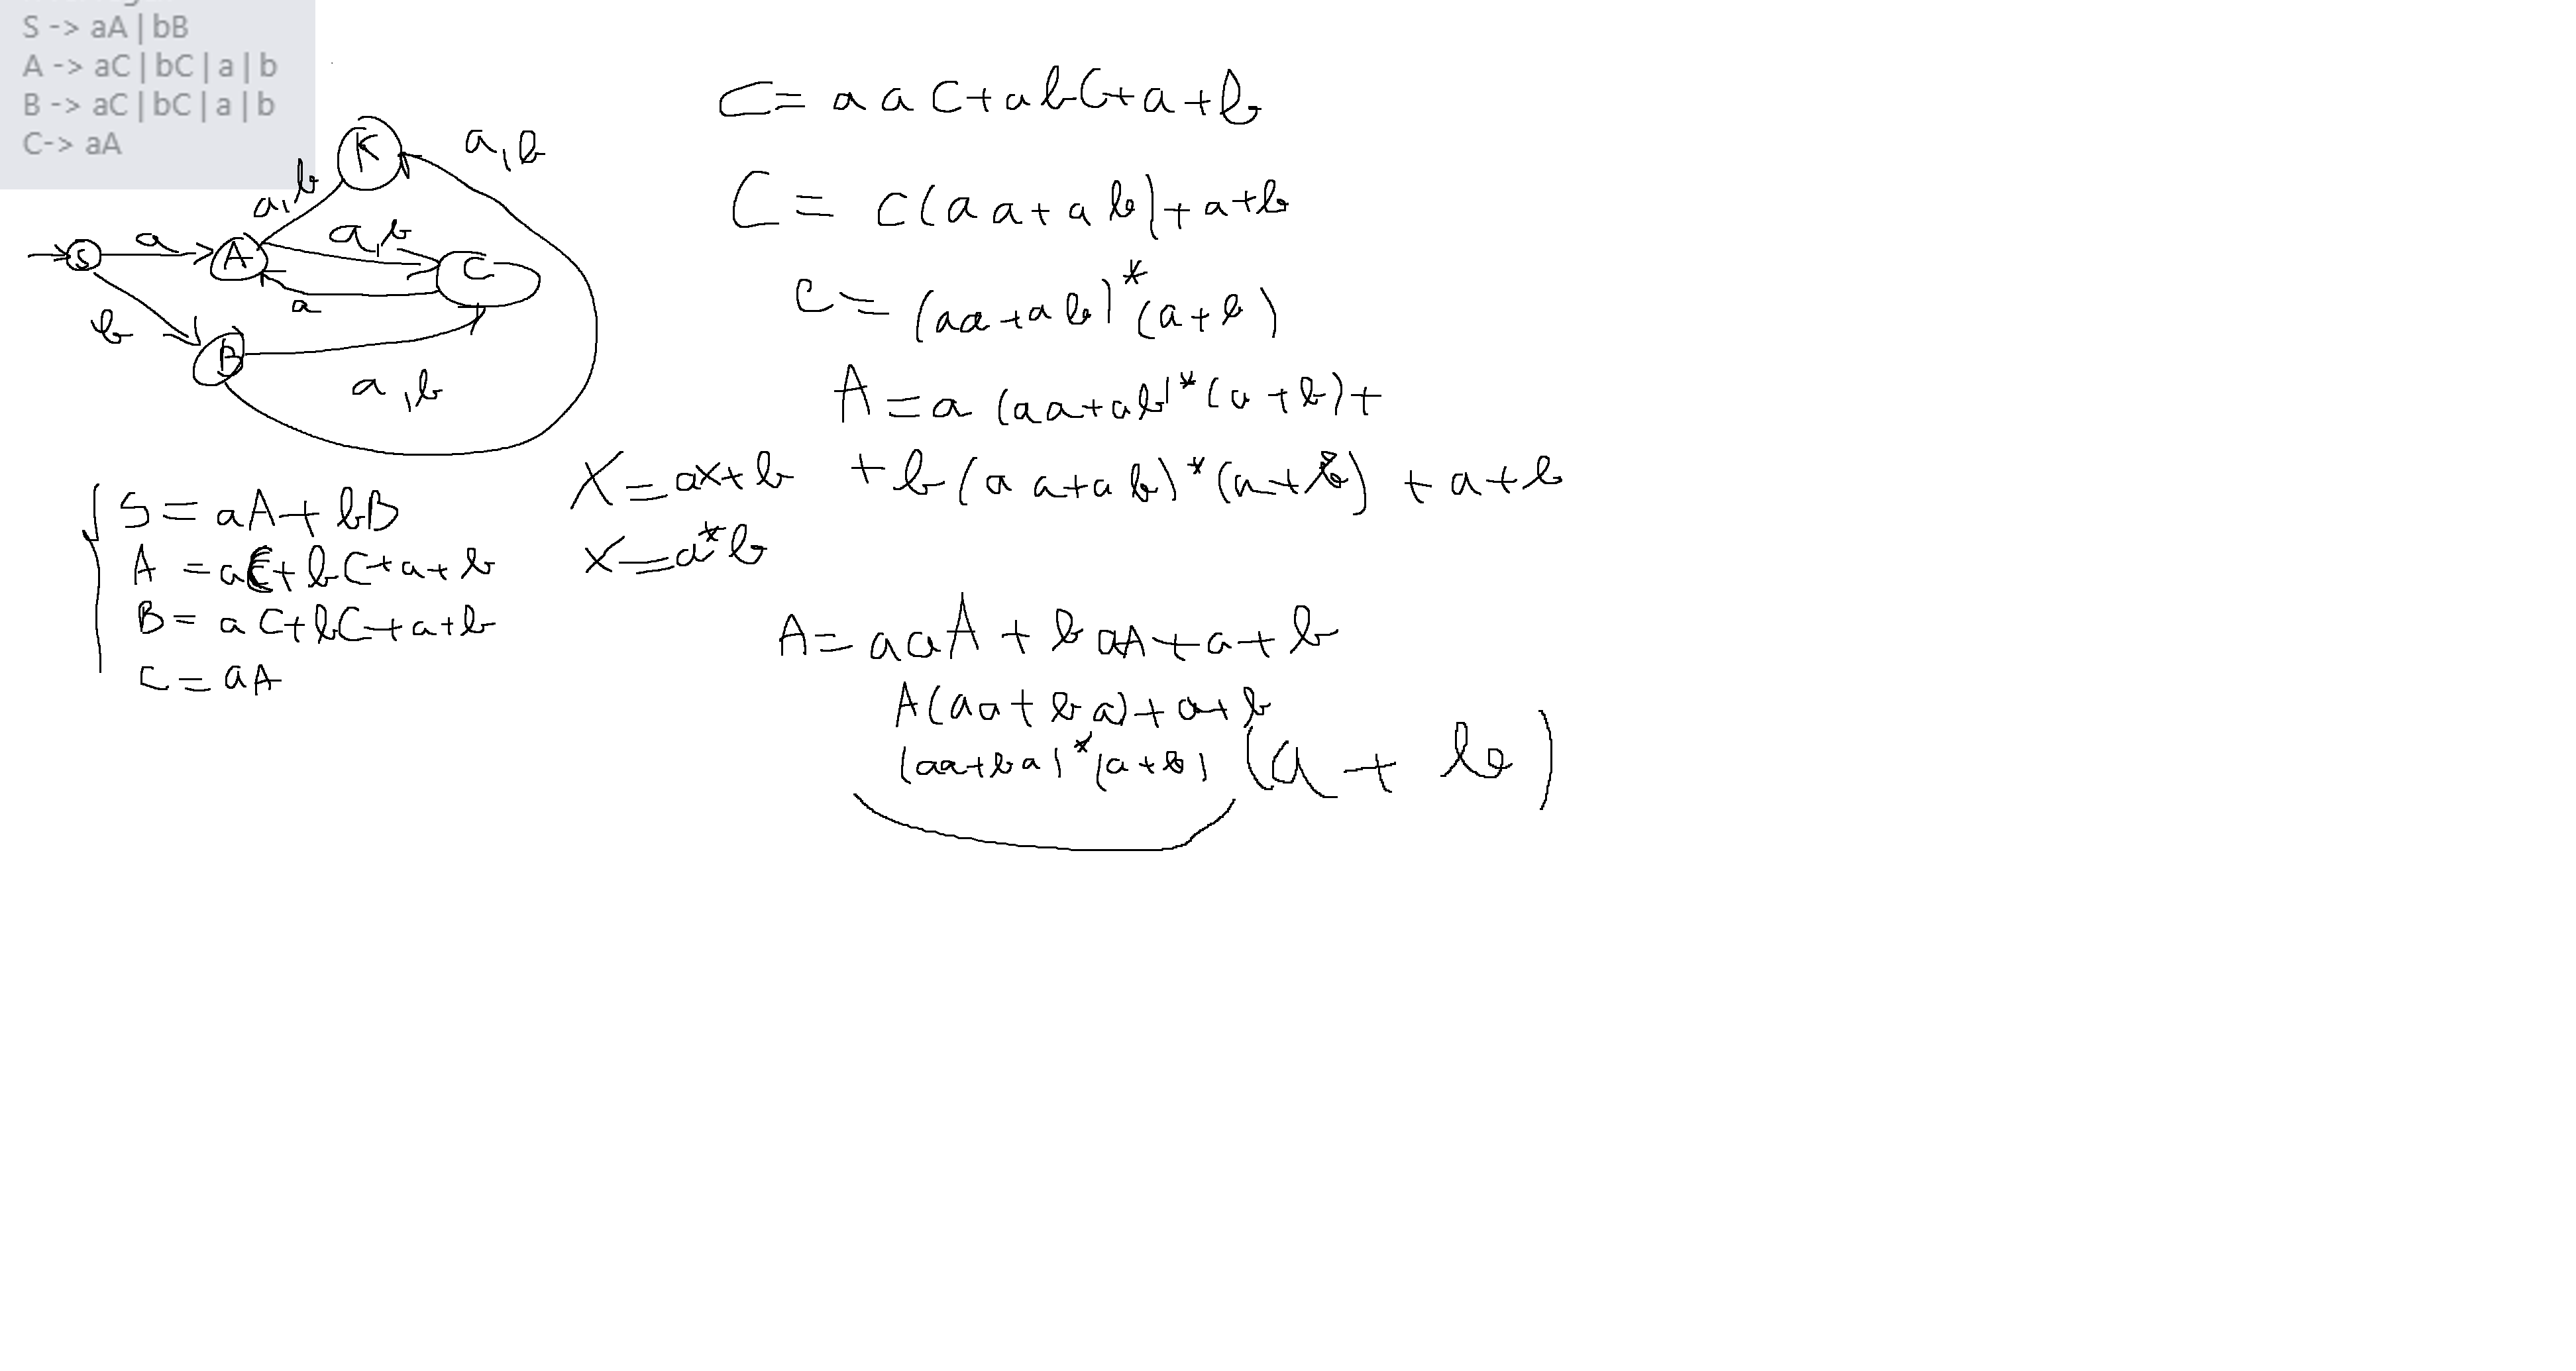 S -> aA | bB
A -> aC | bC | a | b
B -> aC | bC | a | b
C-> aA
K
a,b
a,b
S
a
A
a,b
C
a
b
B
a,b
S = aA + bB
A = aC + bC + a + b
B = aC + bC + a + b
C = aA
C = aaC + abC + a + b
C = C(aa + ab) + a + b
C = (aa + ab)*(a + b)
A = a(aa + ab)*(a + b) +
+ b(aa + ab)*(a + b) + a + b
X = aX + b
X = a*b
A = aaA + baA + a + b
A(aa + ba) + a + b
(aa + ba)*(a + b) (a + b)